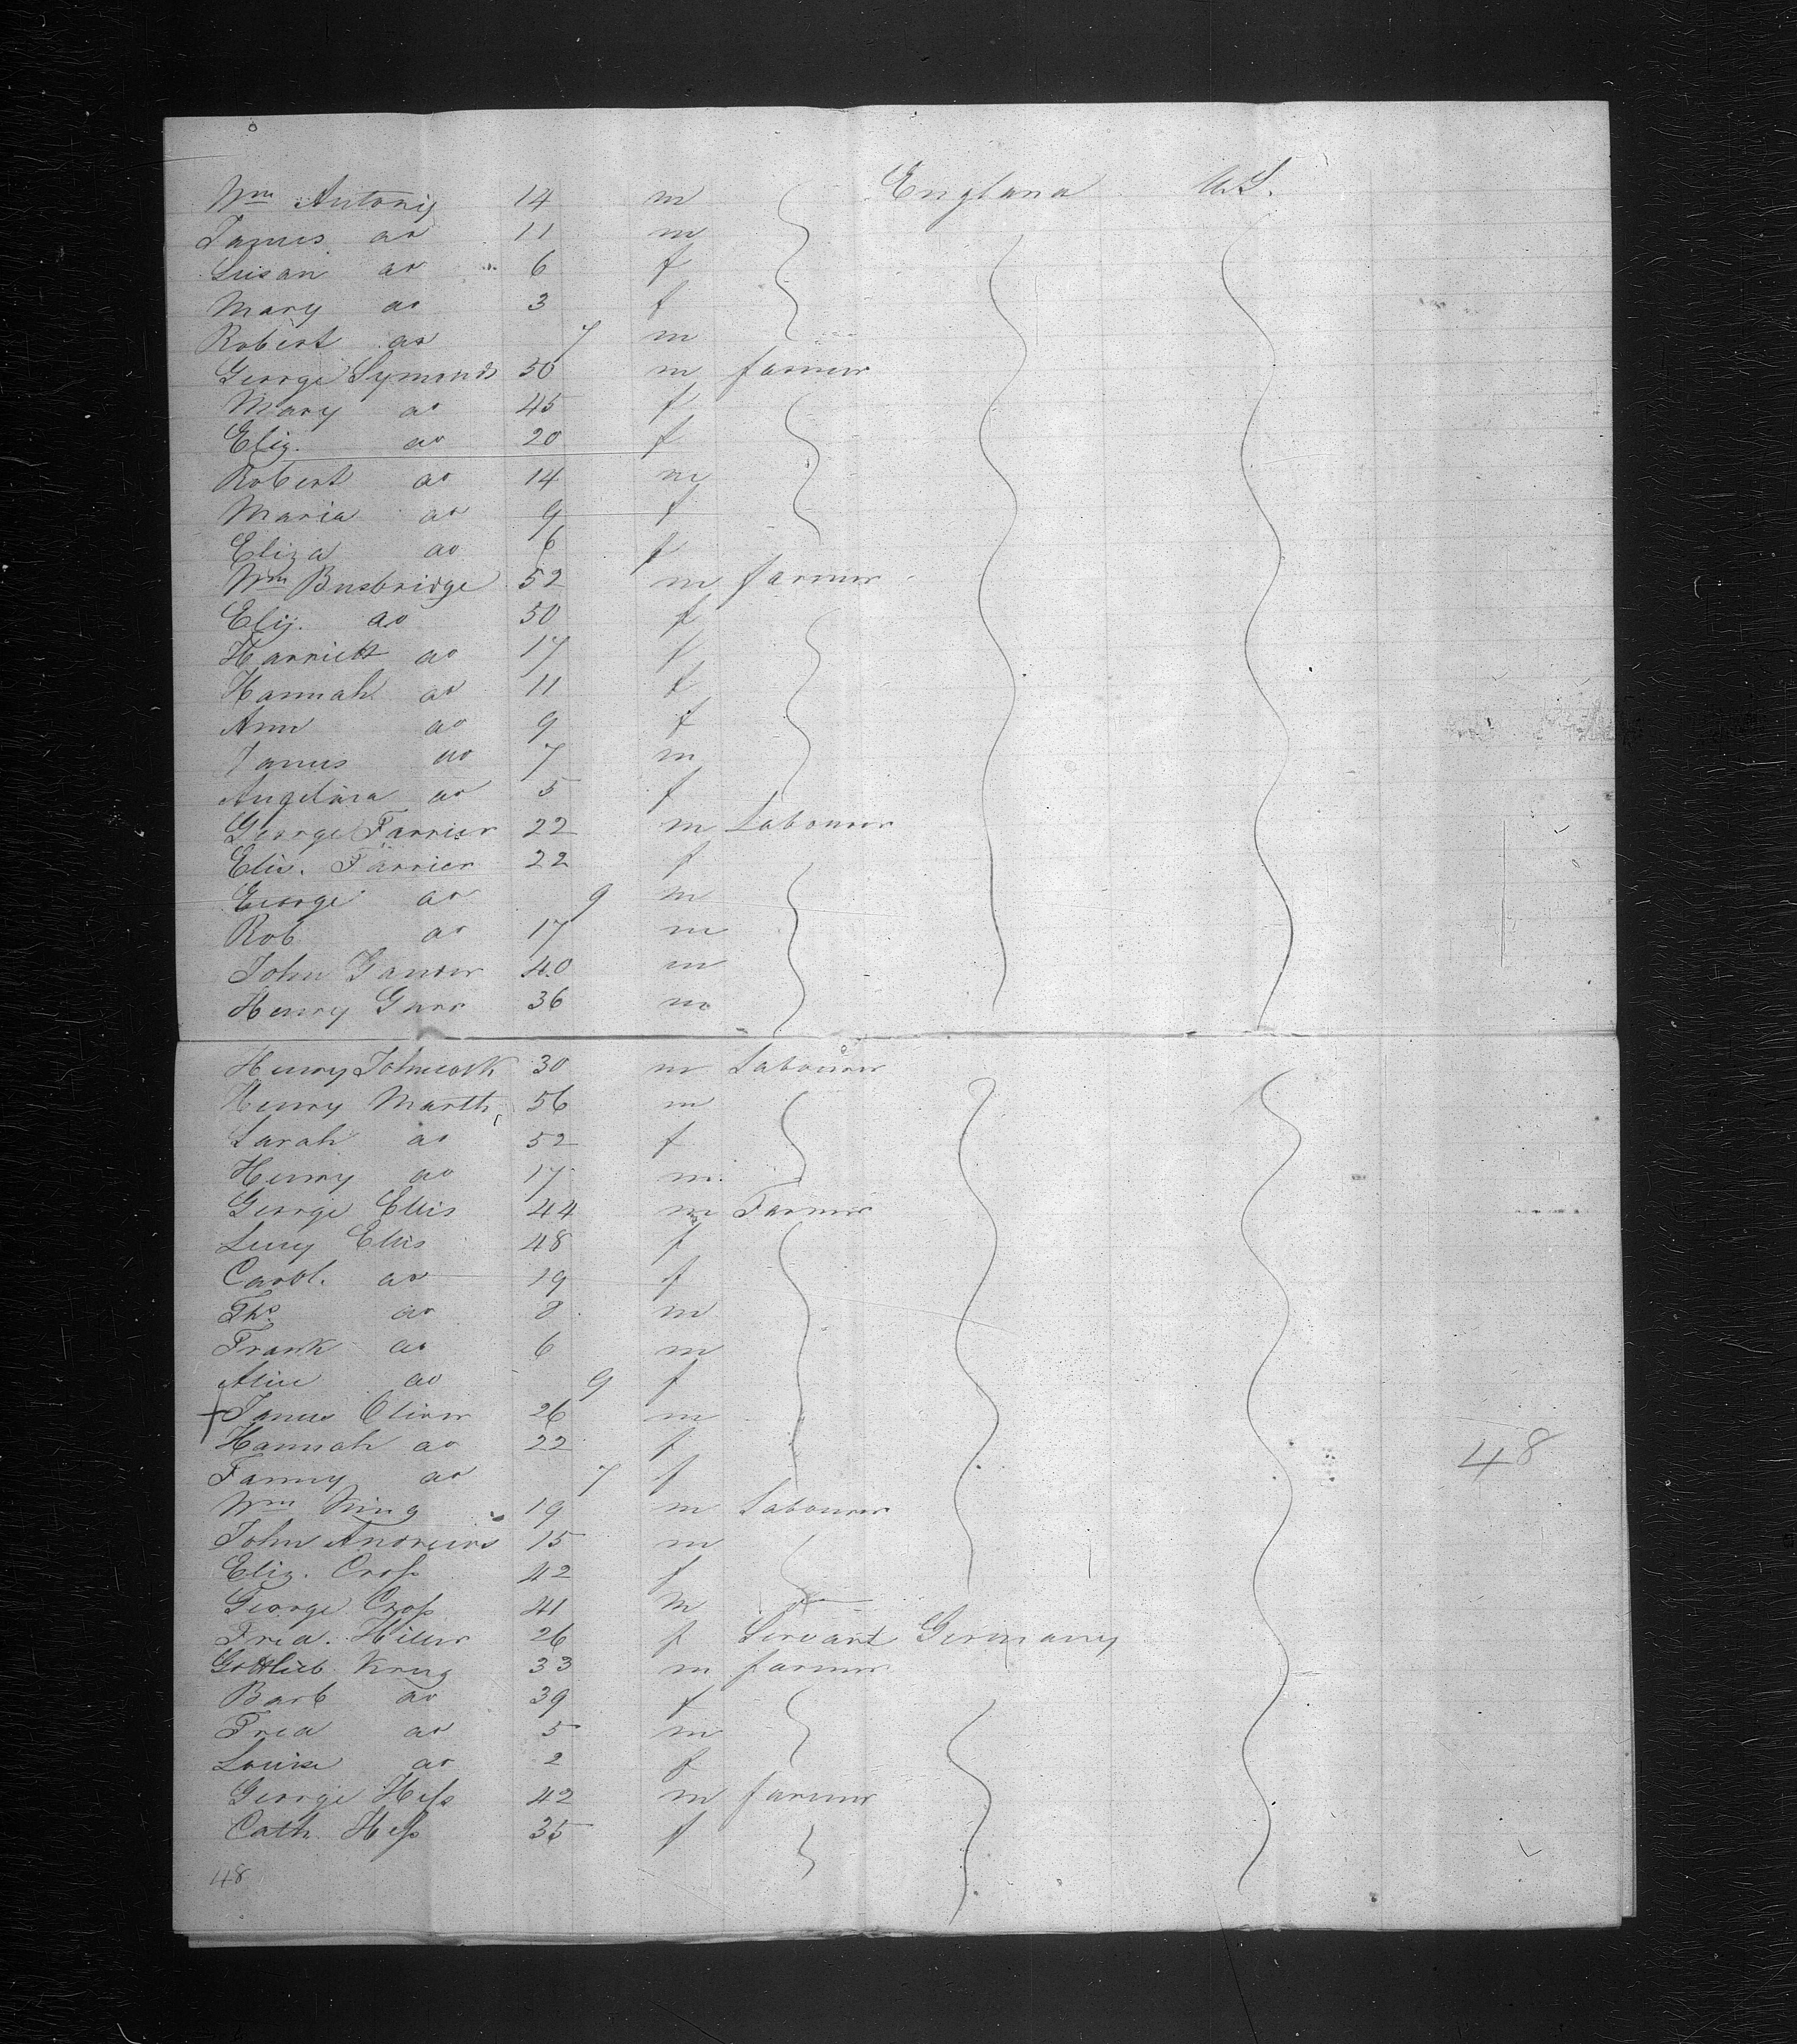 Wm Antony 14 m England U.S.
James do 11 m
Susan do 6 f
Mary do 3 f
Robert do 7 m
George Symonds 50 m farmer
Mary do 45 f
Eliz. do 20 f
Robert do 14 m
Maria do 9 f
Eliza do 6 f
Wm Busbridge 52 m farmer
Eliz. do 50 f
Harriett do 17 f
Hannah do 11 f
Ann do 9 f
James do 7 m
Angelina do 5 f
George Farrier 22 m Labourer
Elis. Farrier 22 f
George do 9 m
Rob do 17 m
John Gander 40 m
Henry Gurr 36 m
Henry Johncock 30 m Labourer
Henry Marth 56 m
Sarah do 52 f
Henry do 17 m
George Ellis 44 m Farmer
Lucy Ellis 48 f
Carol. do 19 f
Tho. do 8 m
Frank do 6 m
Alice do 9 f
James Oliver 26 m
Hannah do 22 f 48
Fanny do 7 f
Wm King 19 m Labourer
John Andrews 15 m
Eliz. Cross 42 f
George Cross 41 m
Fred. Hiler 26 f Servant Germany
Gottlieb Krug 33 m farmer
Barb do 39 f
Fred do 5 m
Louise do 2 f
George Hess 42 m farmer
Cath. Hess 35 f
48